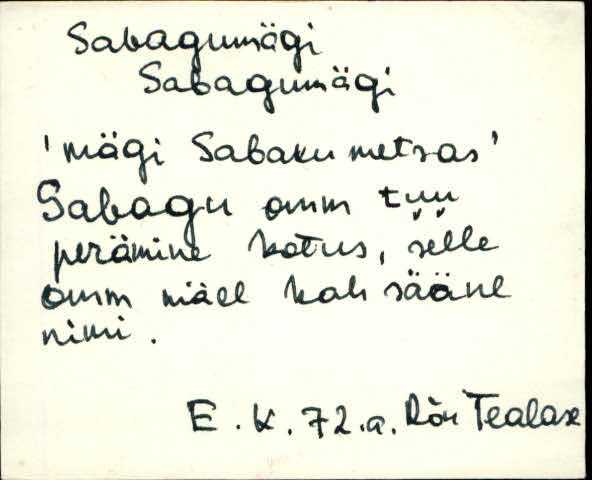 Sabagumägi
Sabagumägi
'mägi Sabaku metsas'
Sabagu omm tuu
perämine kotus, selle
omm mäel kah sääne
nimi.
E. K. 72.a. Rõu Tealase